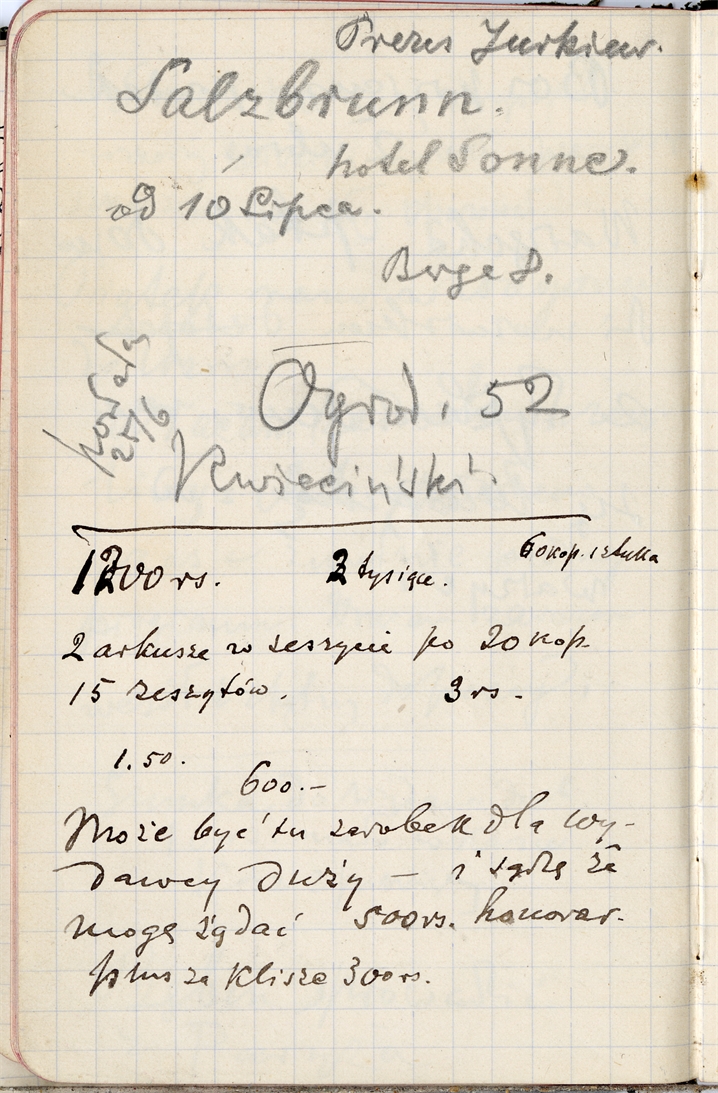 Prezes Jurkiew.
Salzbrunn.
hotel Sonne.
od 10 Lipca.
Berge 8.
25/6
Ogrod. 52
Kwieciński
1200 rs. 2 tysiące. 60 kop. sztuka
2 arkusze w zeszycie po 20 kop.
15 zeszytów. 3 rs.
1.50.
600.–
Może być tu zarobek dla wy-
dawcy duży – i sądzę że
mogę żądać 500 rs. honorar.
plus za klisze 300 rs.